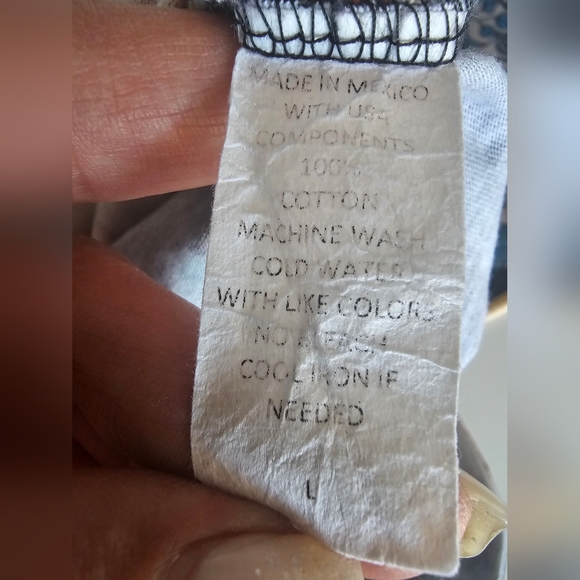 MADE IN MEXICO
WITH USA
COMPONENTS
100%
COTTON
MACHINE WASH
COLD WATER
WITH LIKE COLORS
NO BLEACH
COOL IRON IF
NEEDED
L